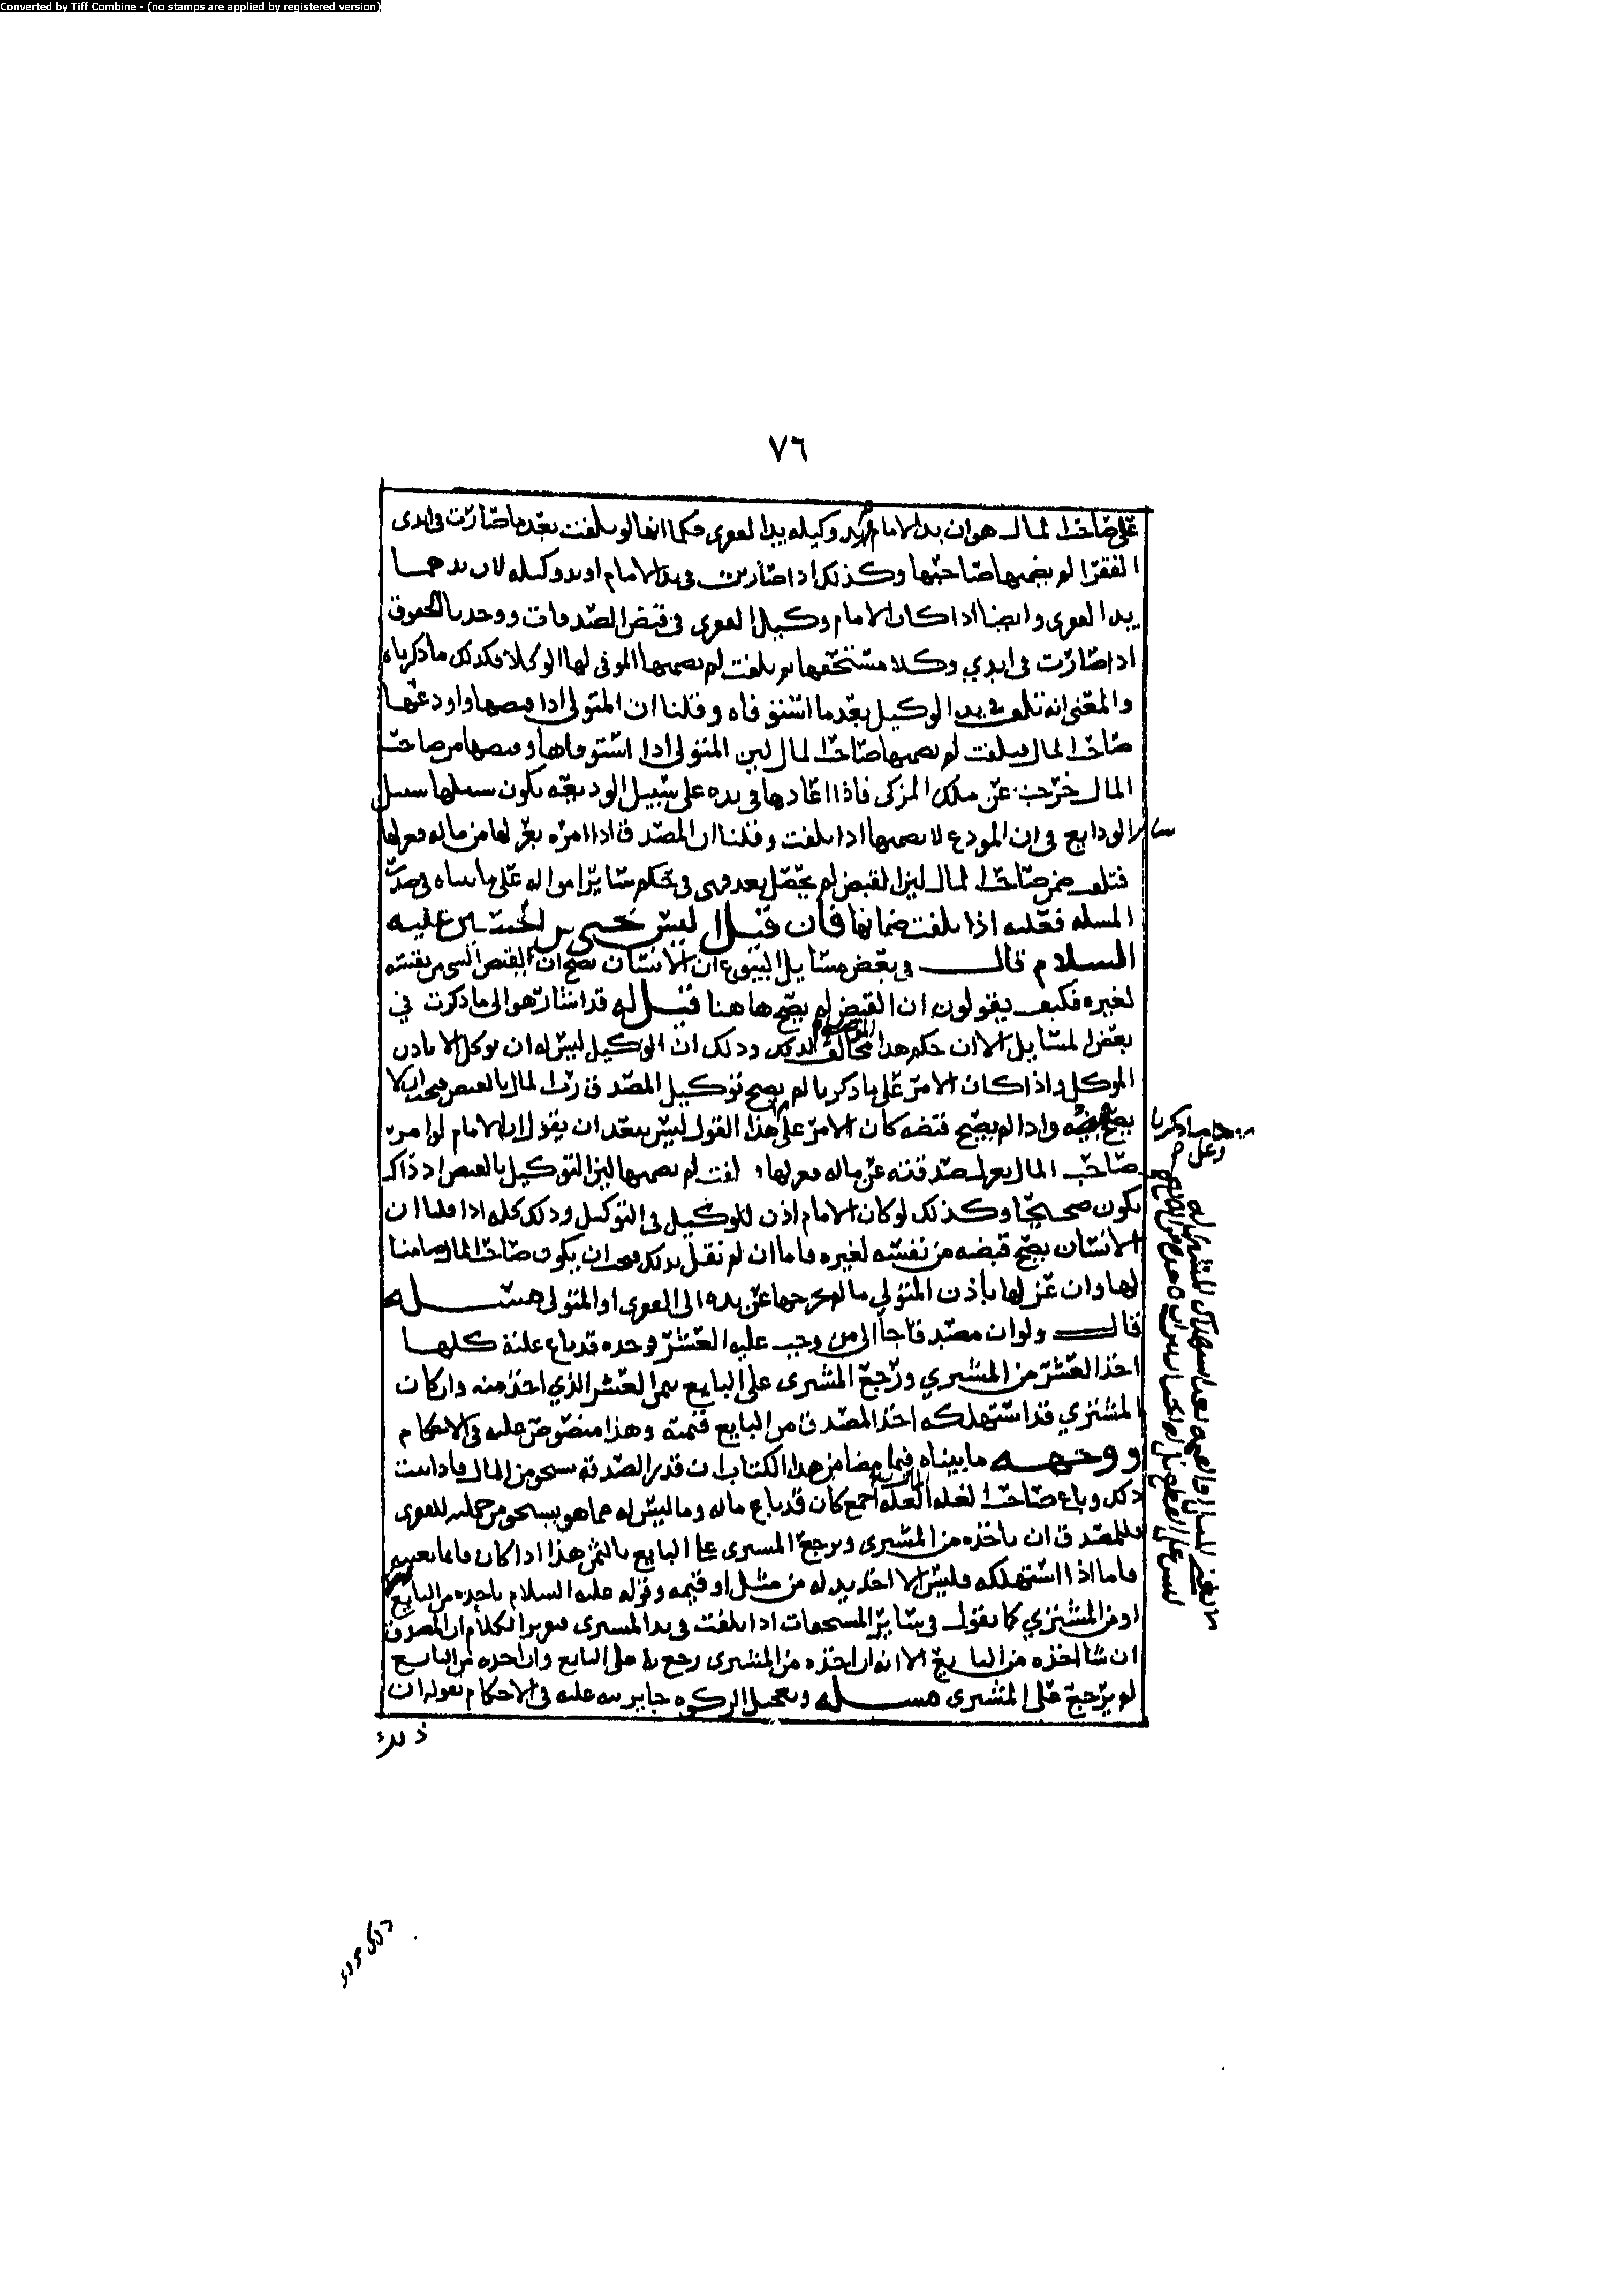 Converted by Tiff Combine - (no stamps are applied by registered version)
٧٦
على صاحب المال هو ان يد الامام ويد وكيله يد الفقرى فكما انها لو تلفت بعد ما صارت في ايدى
الفقرا لم يضمنها صاحبها وكذلك اذا صارت في يد الامام او يد وكيله لان يدهما
يد الفقرى وايضا اذا كان الامام وكيل الفقرى في قبض الصدقات ووجدنا الحقوق
اذا صارت في ايدي وكلا مستحقها ثم تلفت لم يضمنها الموفى لها الوكلا فكذلك ما ذكرناه
والمعنى انه تلف في يد الوكيل بعد ما استوفاه وقلنا ان المتولى اذا قبضها واودعها
صاحب المال فتلفت لم يضمنها صاحب المال لين المتولى اذا استوفاها وقبضها من صاحب
المال خرجت عن ملك المزكى فاذا اعادها في يده على سبيل الوديعة يكون سبيلها سبيل
ساير الودايع في ان المودع لا يضمنها اذا تلفت وقلنا ان المصدق اذا امره بعزلها من ماله فعزلها
فتلفت ضمن صاحب المال لين القبض لم يحصل بعد فهى في حكم ساير امواله على ما بيناه في صدر
المسله فعليه اذا تلفت ضمانها فان قيل ليس يحيى بن الحسين عليه
السلام قال في بعض مسايل البيوع ان الانسان يصح ان يقبض الشى من نفسه
لغيره فكيف يقولون ان القبض لم يصح هاهنا قيل له قد اشار هو الى ما ذكرت في
بعض المسايل الا ان حكم هذا الموضع مخالف لذلك وذلك ان الوكيل ليس له ان يوكل الا باذن
الموكل واذا كان الامر على ما ذكرنا لم يصح توكيل المصدق رب المال بالقبض فيجب ان لا
يصح قبضه واذا لم يصح قبضه كان الامر على هذا القول ليس يبعد ان يقول ان الامام لو امر
صاحب المال بعزل صدقته عن ماله فعزلها و تلفت لم يضمنها لين التوكيل بالقبض اذ ذاك
يكون صحيحا وكذلك لو كان الامام اذن للوكيل في التوكيل وذلك كله اذا قلنا ان
الانسان يصح قبضه من نفسه لغيره فاما ان لم نقل بذلك فيجب ان يكون صاحب المال ضامنا
لها وان عزلها باذن المتولي ما لم يخرجها عن يده الى الفقرى او المتولى مسله
قال ولو ان مصدقا جا الى من وجب عليه العشر فوجده قد باع غلته كلها
اخذ العشر من المشتري ورجع المشترى على البايع بثمن العشر الذي اخذ منه وان كان
المشتري قد استهلكه اخذ المصدق من البايع قيمته وهذا منصوص عليه في الاحكام
ووجهه ما بيناه فيما مضا من هذا الكتاب ان قدر الصدقة يستحق من المال فاذا ثبت
ذلك وباع صاحب الغله الغله اجمع كان قد باع ماله وما ليس له مما هو يستحق من جملته للفقرى
فللمصدق ان ياخذه من المشترى ويرجع المشترى على البايع بالثمن هذا اذا كان قايما بعينه
فاما اذا استهلكه فليس الا اخذ بدله من مثل او قيمه وقوله عليه السلام ياخذه من البايع
او من المشتري كما نقول في ساير المستحقات اذا تلفت في يد المشترى ان المصدق
ان شا اخذه من البايع الا انه ان اخذه من المشترى رجع به على البايع وان اخذه من البايع
لم يرجع على المشترى مسله وتعجيل الزكوه جايز نبه عليه في الاحكام بقوله ان
ذلك